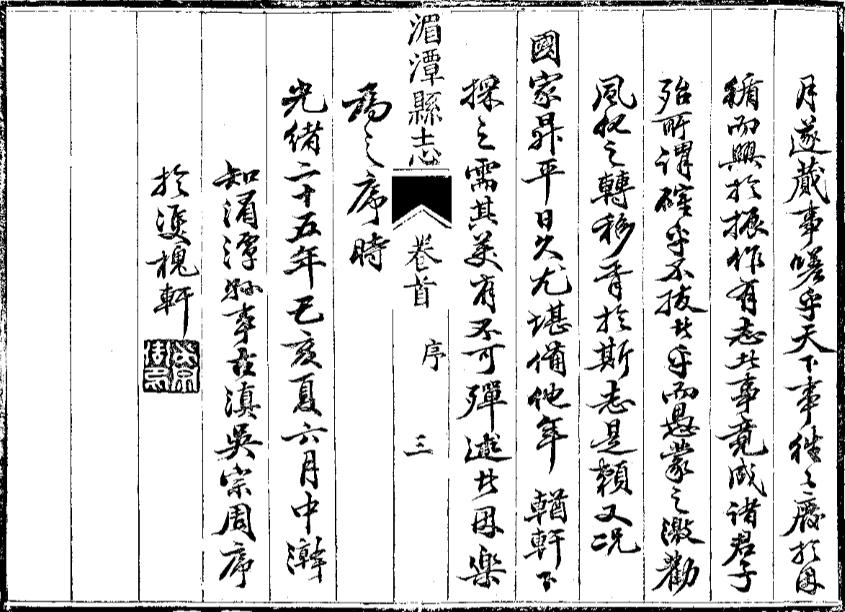 月遂蕆事嗟乎天下事往之廢於因
循而興於振作有志者事竟成諸君子
殆所謂確乎不拔者乎而愚蒙之激勸
風化之轉移胥於斯志是賴又況
國家昇平日久尤堪備他年　輶軒下
採之需其美有不可殫述者因樂
為之序時
光緒二十五年己亥夏六月中澣
知湄潭縣事古滇吳宗周序
於雙槐軒
湄潭縣志
卷首
序
三